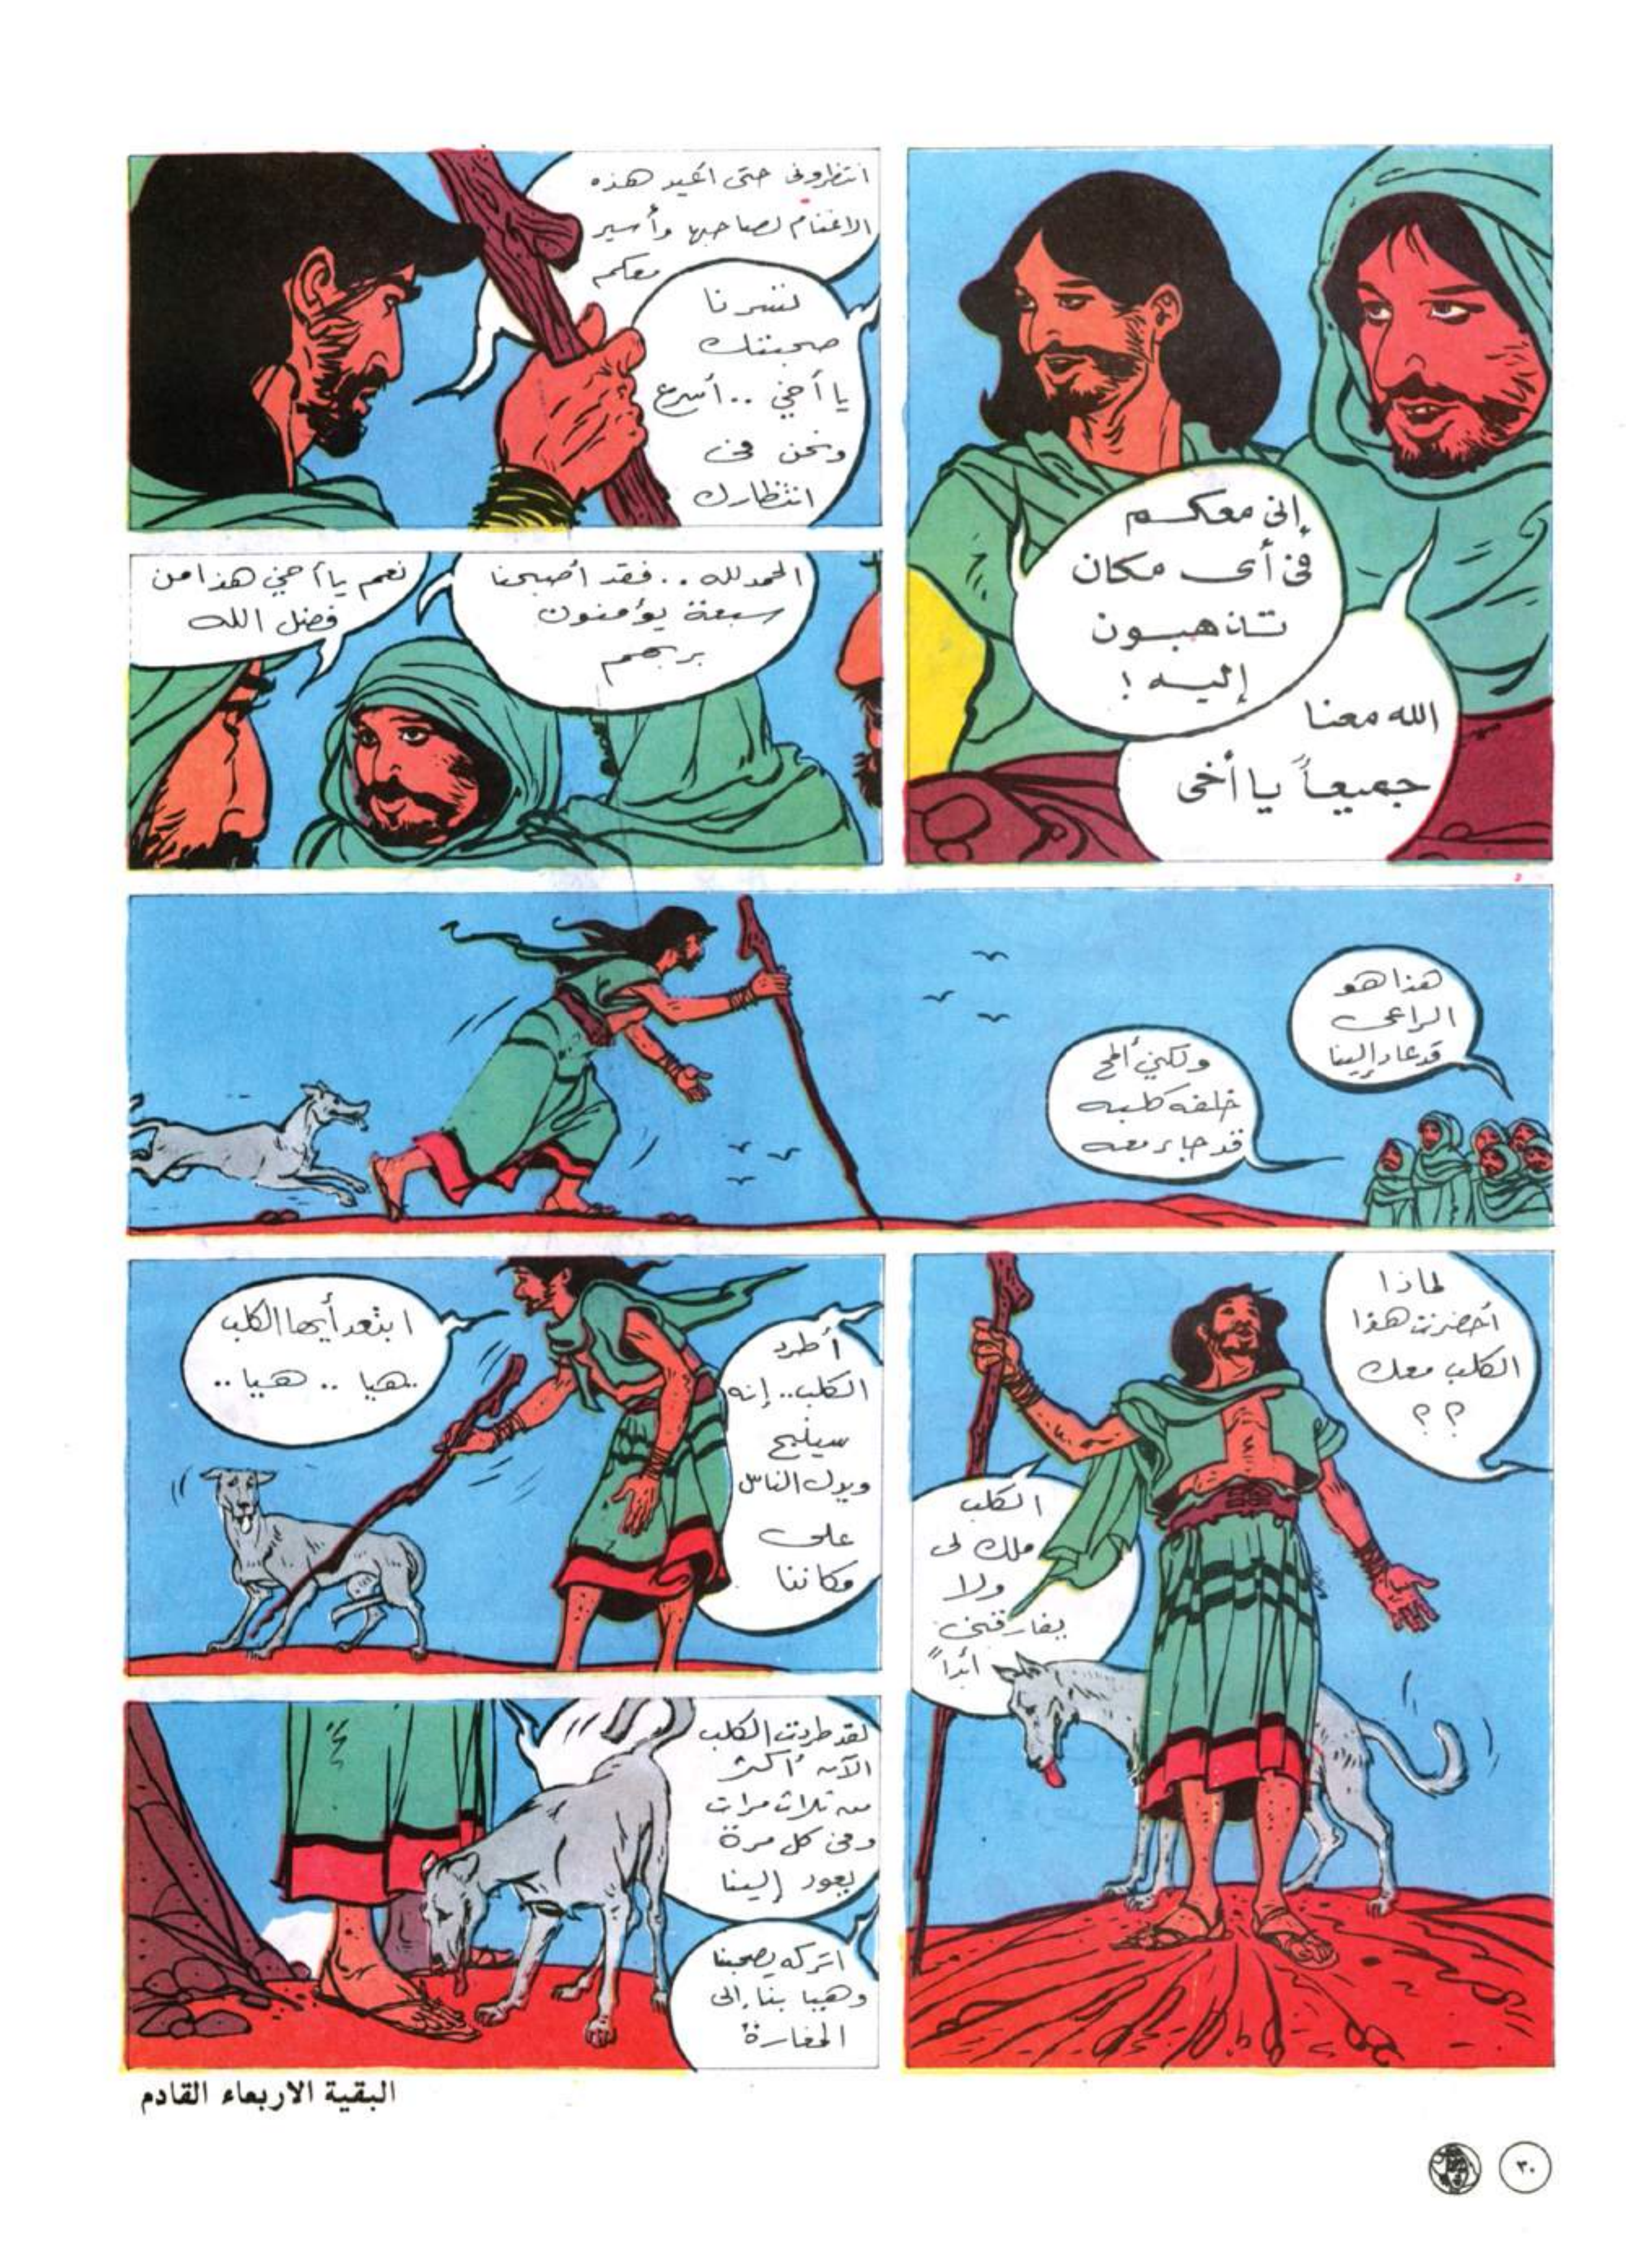 إنى معكم
فى أى مكان
تذهبون
إليه !
الله معنا
جميعاً يا أخى
انتظرونى حتى أعيد هذه
الاغنام لصاحبها وأسير
معكم
تسرنا
صحبتك
يا أخي .. أسرع
ونحن فى
انتظارك
الحمد لله .. فقد أصبحنا
سبعة يؤمنون
بربهم
نعم يا أخي هذا من
فضل الله
هذا هو
الراعى
قد عاد إلينا
ولكني ألمح
خلفه كلبه
قد جاء معه
لماذا
أحضرت هذا
الكلب معك
؟ ؟
الكلب
ملك لى
ولا
يفارقنى
أبداً
أطرد
الكلب.. إنه
سينبح
ويدل الناس
على
مكاننا
ابتعد أيها الكلب
..هيا .. هيا ..
لقد طردت الكلب
الآن أكثر
من ثلاث مرات
وفى كل مرة
يعود إلينا
اتركه يصحبنا
وهيا بنا إلى
المغارة
البقية الاربعاء القادم
٣٠